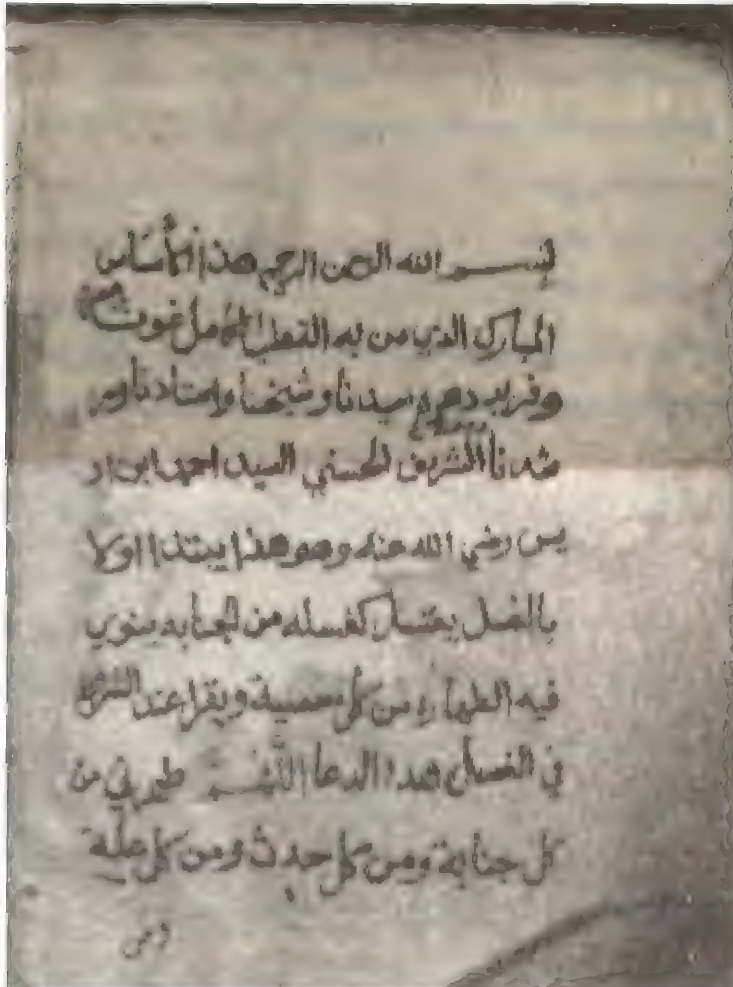 بسم الله الرحمن الرحيم هذا الأساس
المبارك الذي من به القطب الكامل غوث
وفريد دهره سيدنا وشيخنا واستادنا ومر
شدنا الشريف الحسني السيد احمد ابن ادر
يس رضي الله عنه وهو هذا يبتدا اولا
بالغسل يغتسل كغسله من الجنابه ينوي
فيه الطهارة من كل معصية ويقرا عند الشروع
في الغسل هدا الدعا اللهم طهرني من
كل جنابة ومن كل حدث ومن كل علة
ومن